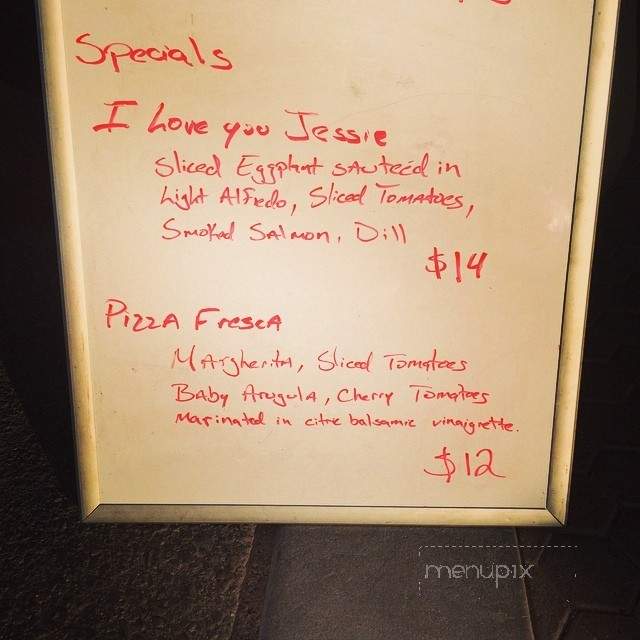 Specials
I Love you Jessie
Sliced Eggplant sauteéd in
Light Alfredo, Sliced Tomatoes,
Smoked Salmon, Dill
$14
Pizza Fresca
Margherita, Sliced Tomatoes
Baby Arugula, Cherry Tomatoes
marinated in citric balsamic vinaigrette.
$12
menupix